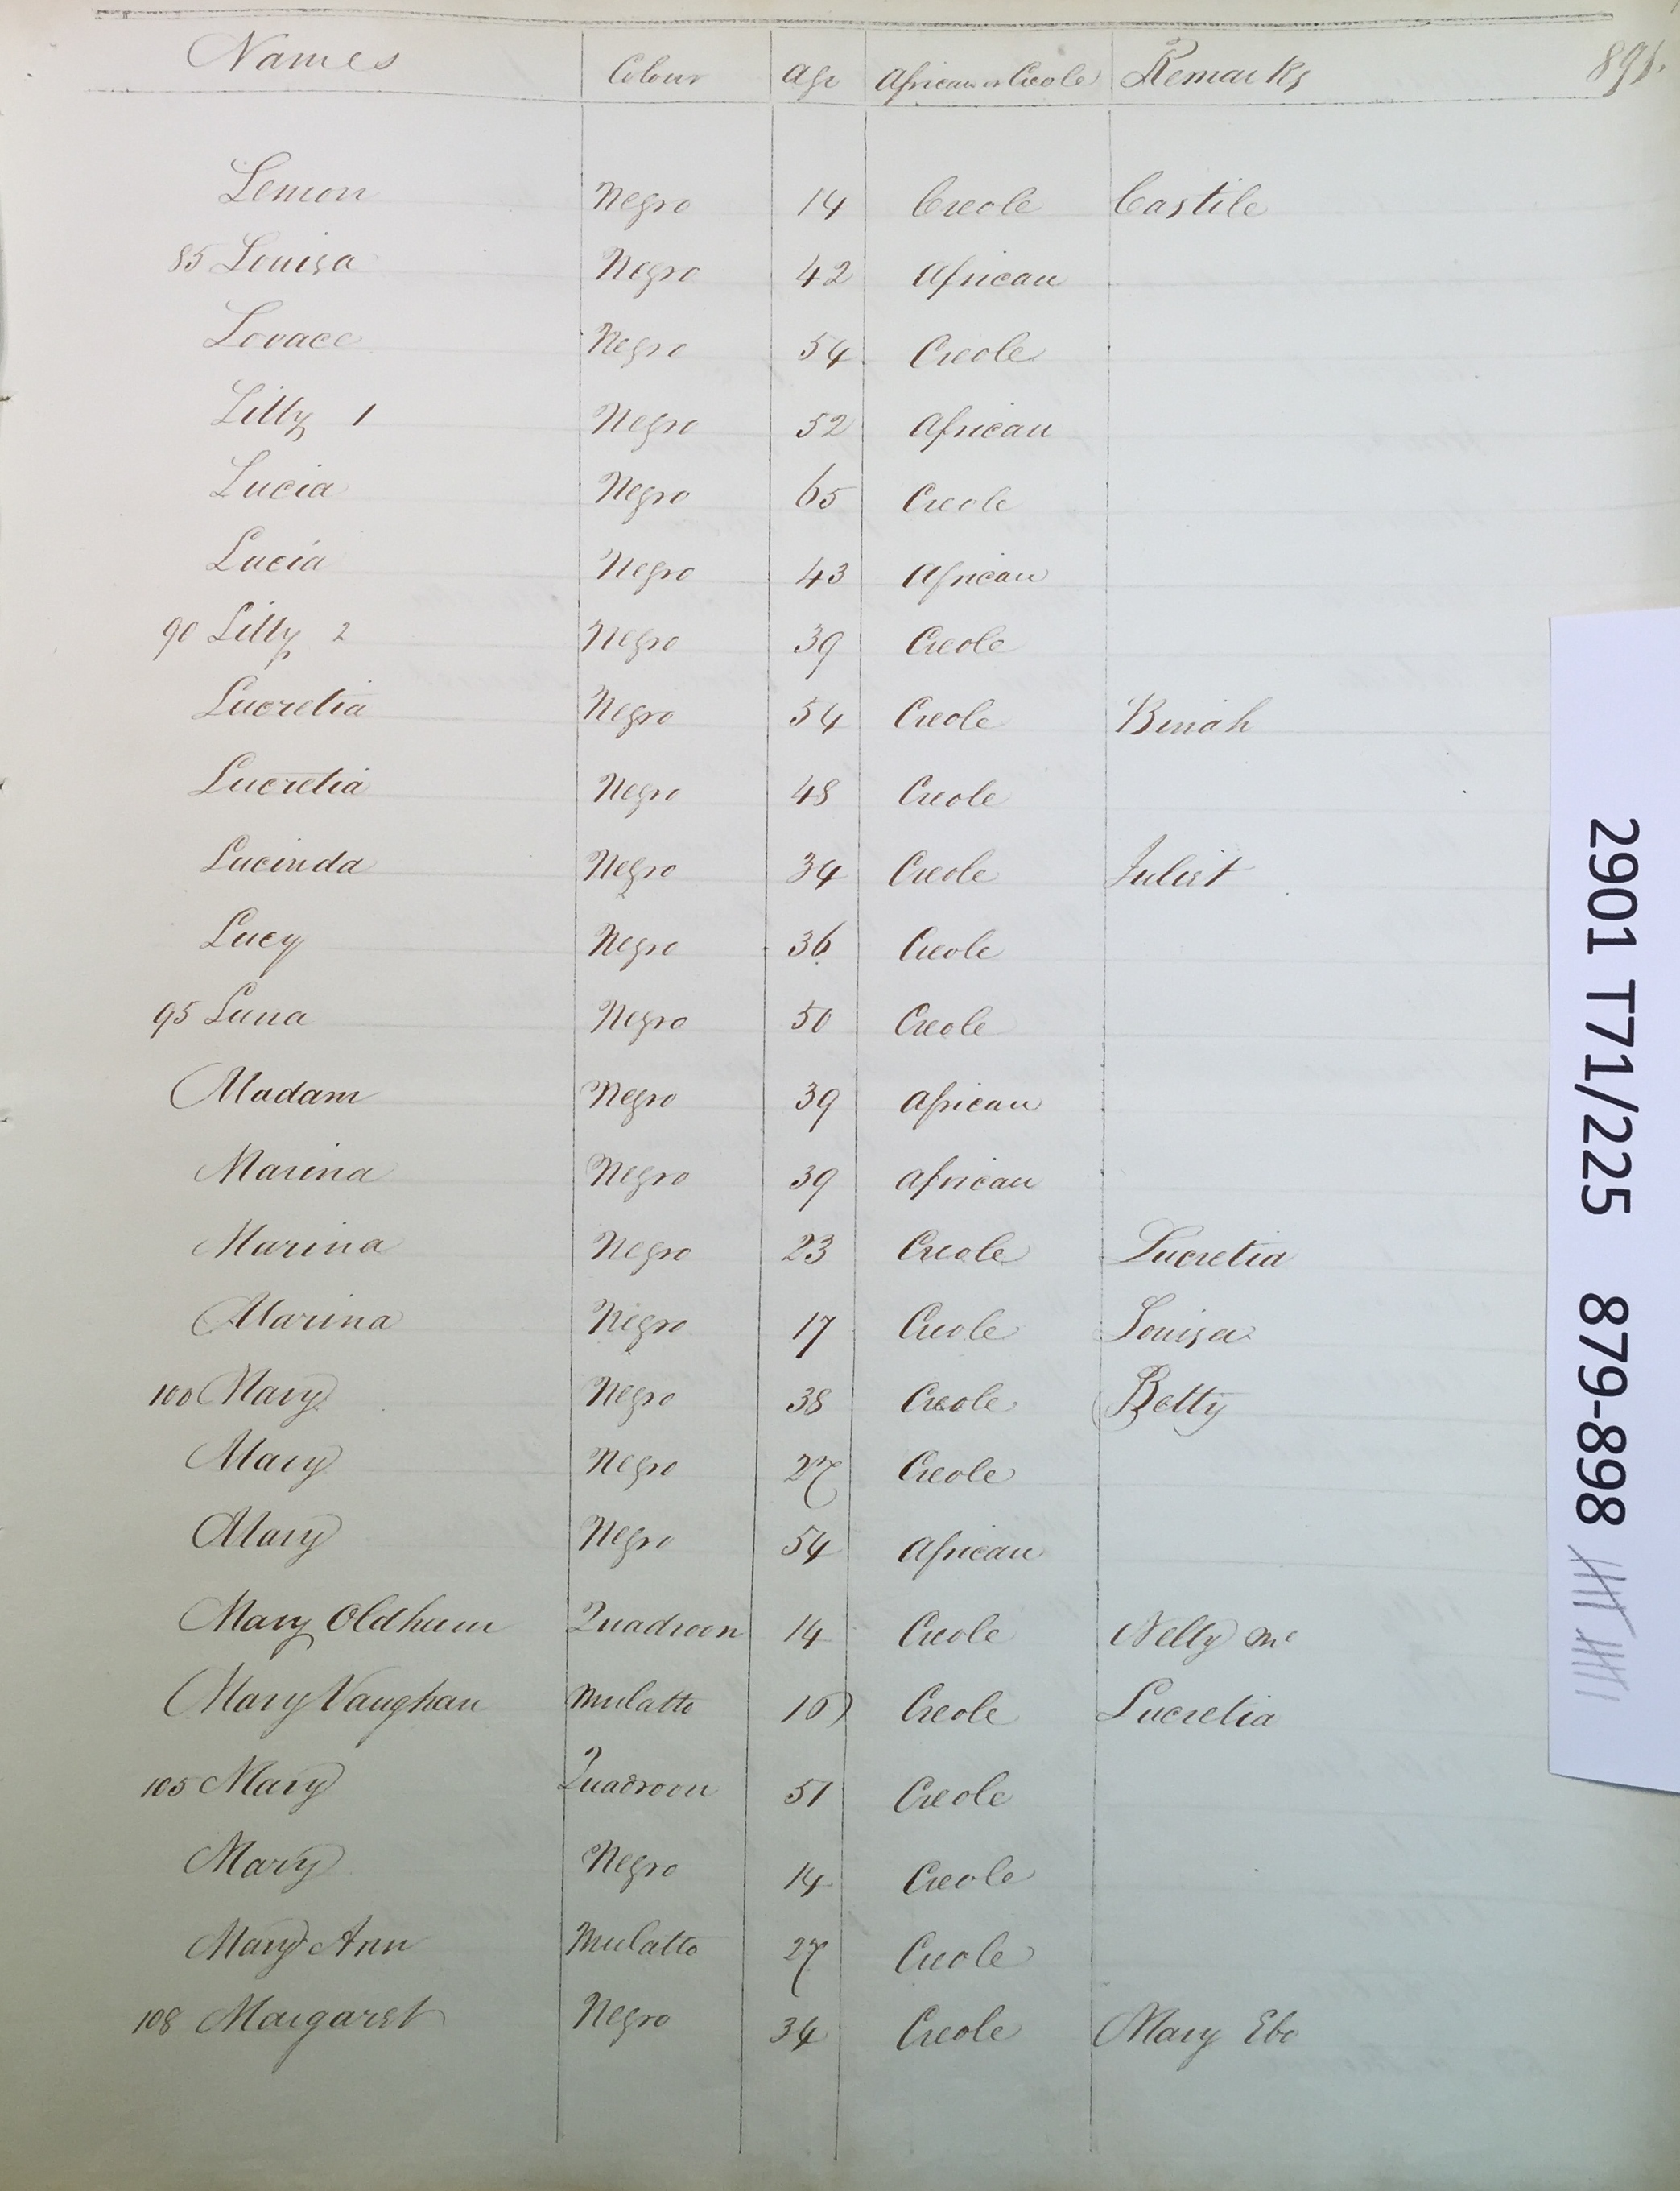 Names Colour Age African or Creole Remarks 891.
Lemon Negro 14 Creole Castile
85 Louisa Negro 42 African
Lovace Negro 54 Creole
Lilly 1 Negro 52 African
Lucia Negro 65 Creole
Lucia Negro 43 African
90 Lilly 2 Negro 39 Creole
Lucretia Negro 54 Creole Binah
Lucretia Negro 48 Creole
Lucinda Negro 34 Creole Juliet
Lucy Negro 36 Creole
95 Luna Negro 50 Creole
Madam Negro 39 African
Marina Negro 39 African
Marina Negro 23 Creole Lucretia
Marina Negro 17 Creole Louisa
100 Mary Negro 38 Creole Betty
Mary Negro 27 Creole
Mary Negro 54 African
Mary Oldham Quadroon 14 Creole Nelly Mc
Mary Vaughan Mulatto 16 Creole Lucretia
105 Mary Quadroon 51 Creole
Mary Negro 14 Creole
Mary Ann Mulatto 27 Creole
108 Margaret Negro 34 Creole Mary Ebo
2901 T71/225 879-898